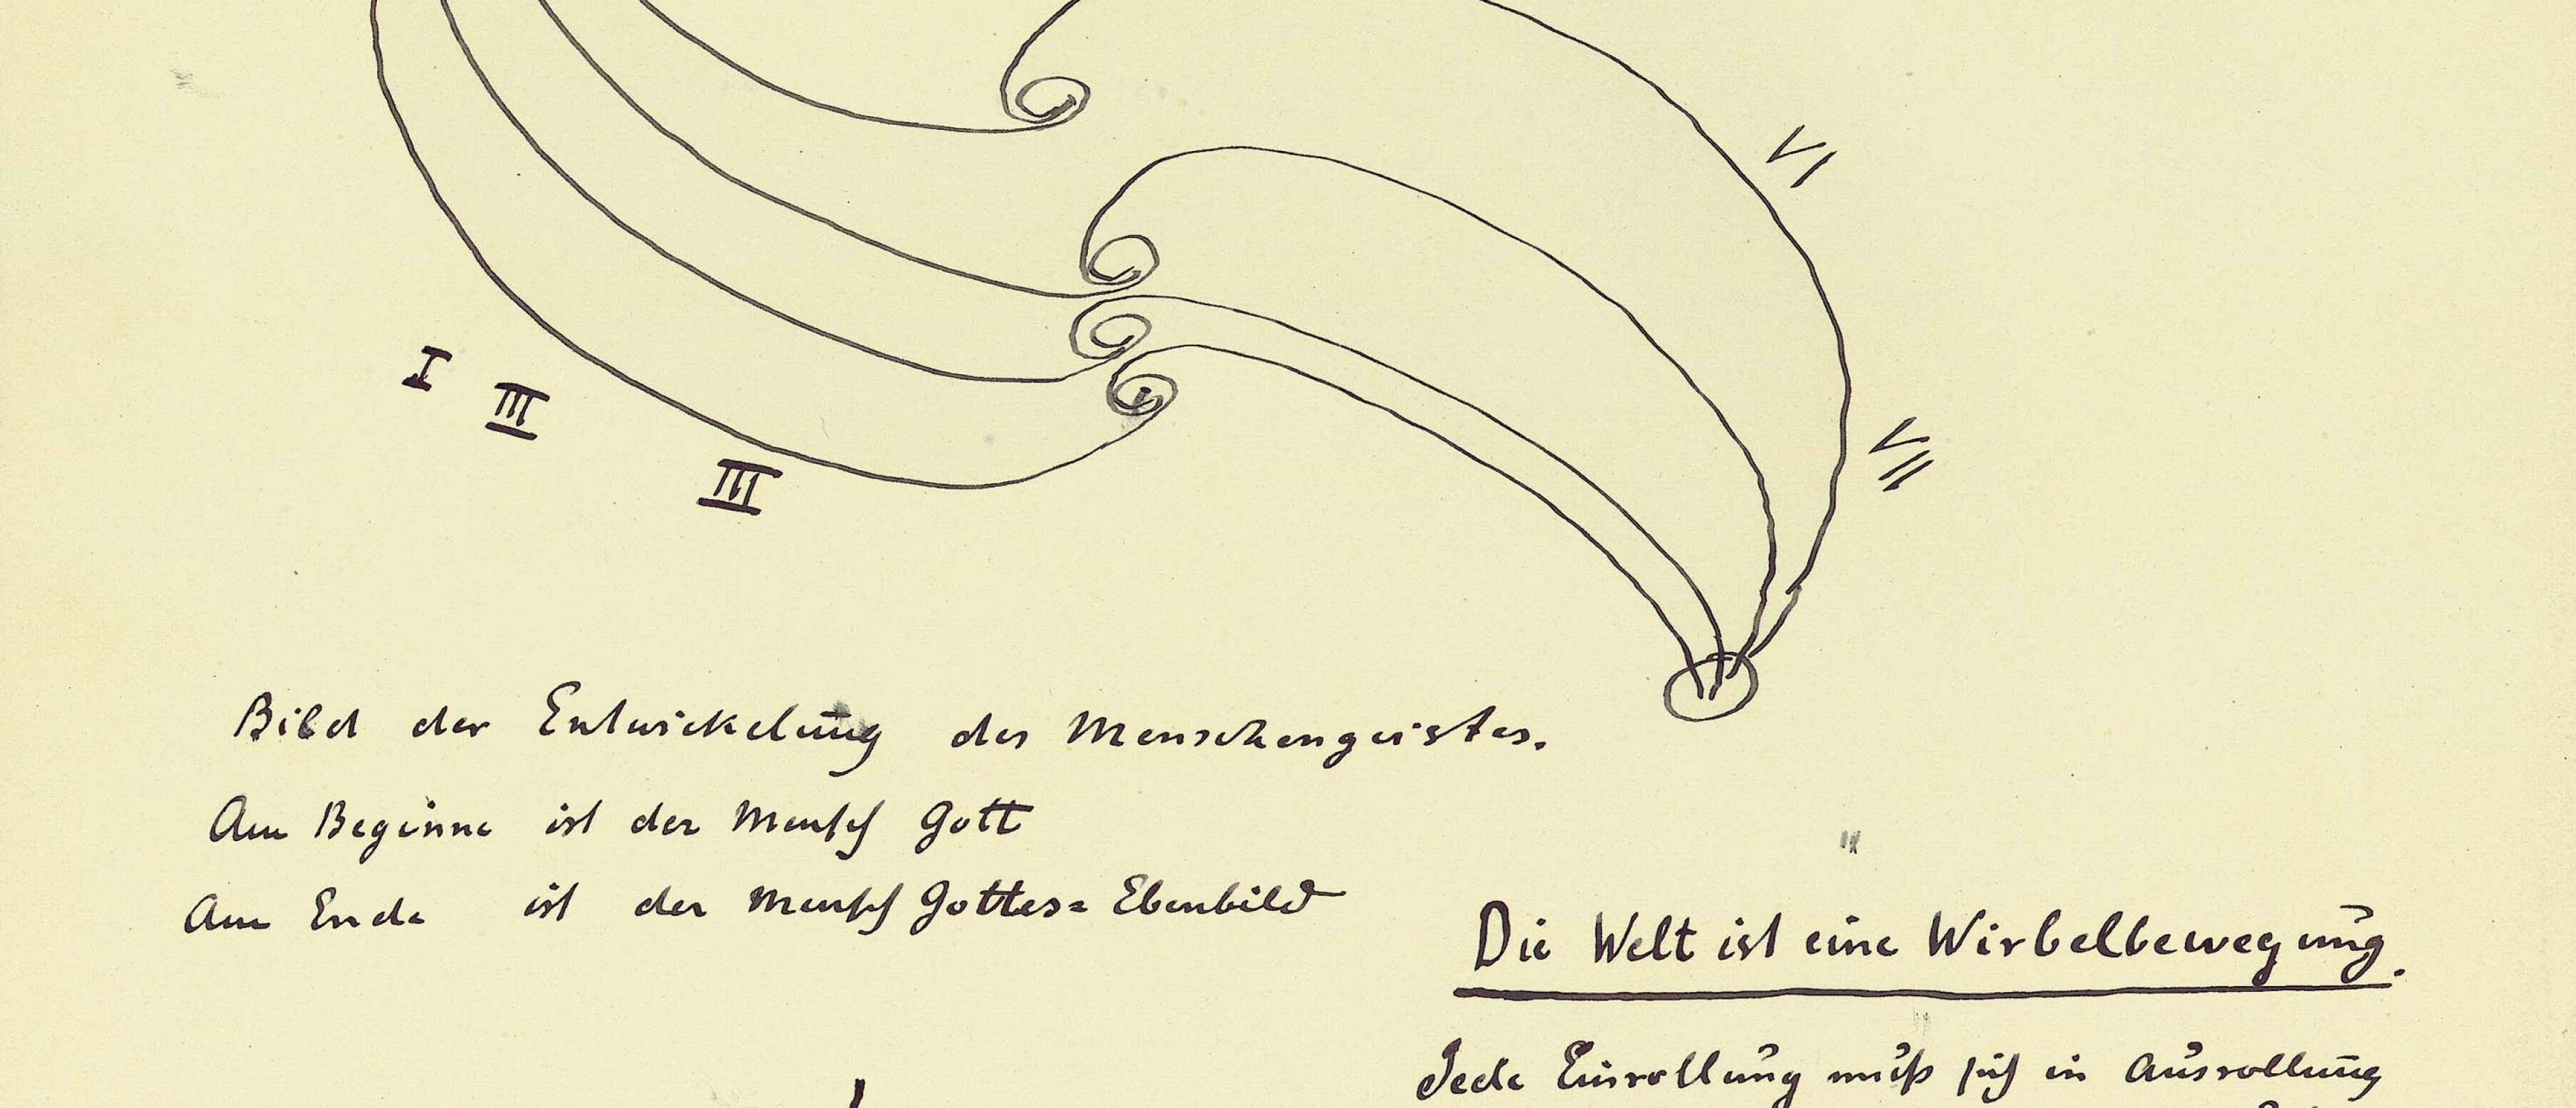 VI
VII
I
III
III
Bild der Entwickelung des Menschengeistes.
Am Beginne ist der Mensch Gott
Am Ende ist der Mensch Gottes= Ebenbild
Die Welt ist eine Wirbelbewegung.
Jede Einrollung muß sich in Ausrollung